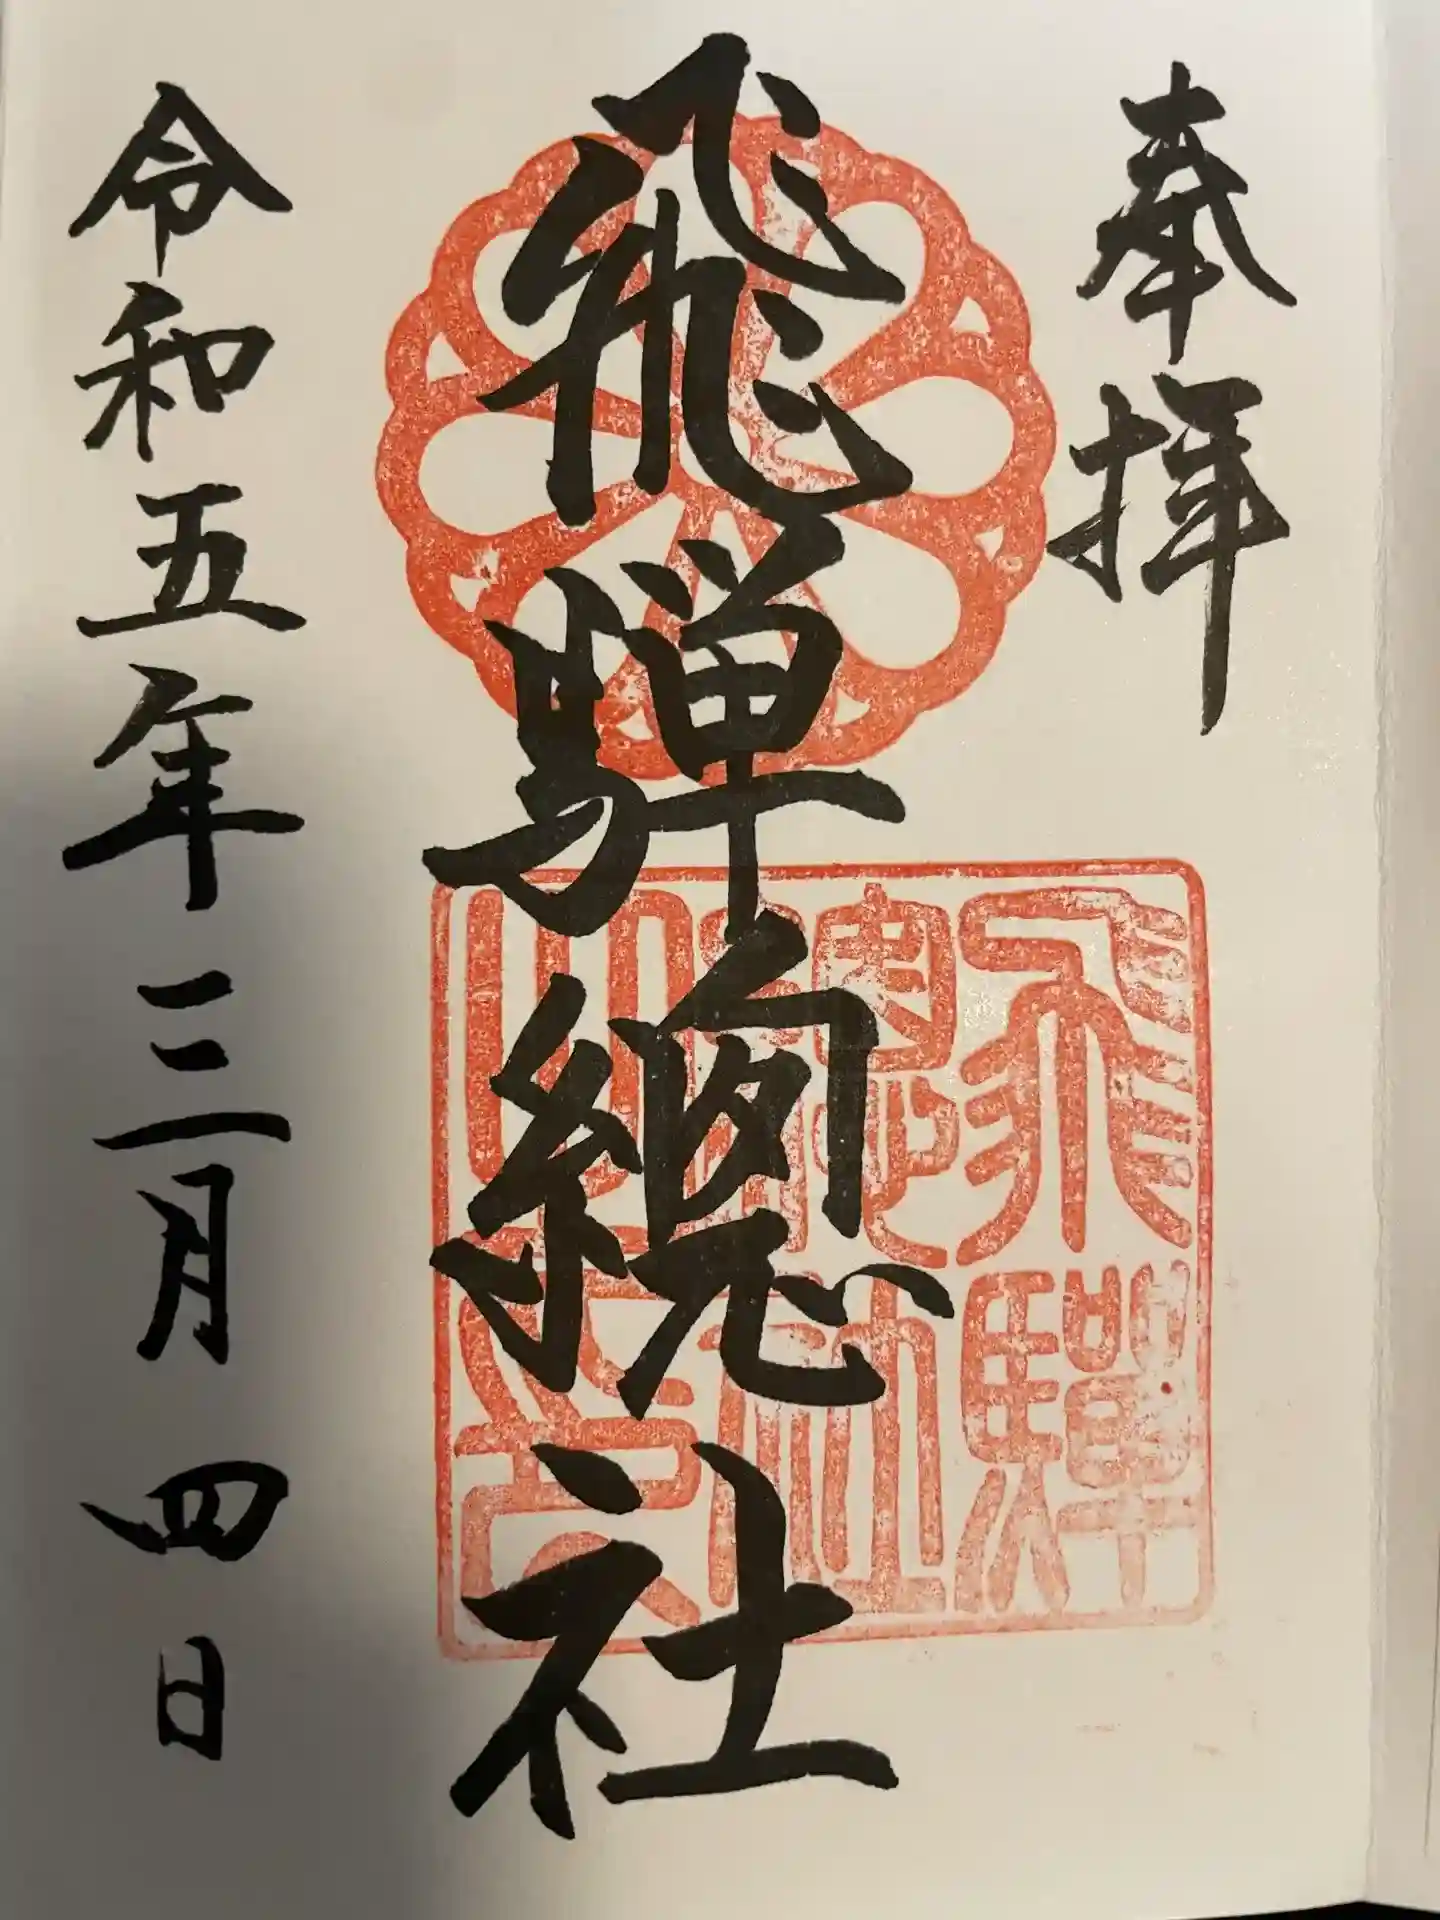 奉拝
飛騨総社
飛騨総社之印
令和五年三月四日